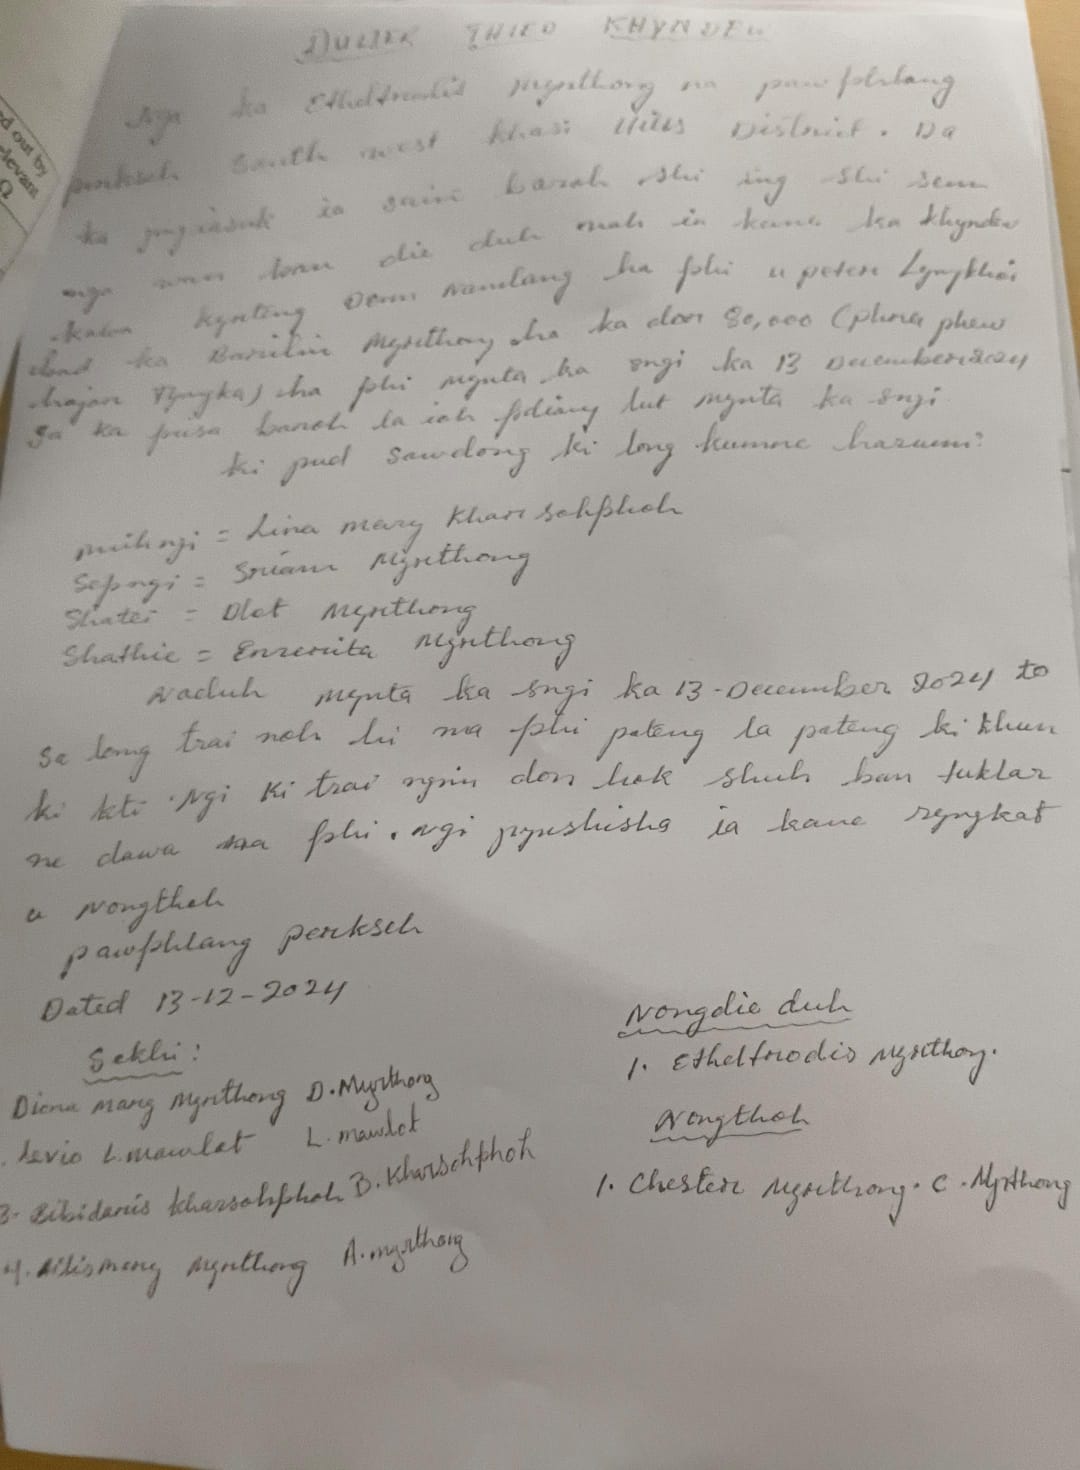 DULIR THIED KHYNDEW
Nga ka Etheltrodis Myrthong na pawphlang
perkseh South west khasi Hills District. Da
ka jingiasuk ia sain baroh shi ing shi sem
nga wan ban die duh noh ia kane ka khyndew
kaba kynteng Dom ha phi u peter Lyngkhoi
bad ka Barilin Myrthong ha ka dor 80,000 (phra phew
hajar tyngka) ha phi mynta ka sngi ka 13 December 2024
ka pisa baroh la ioh pdiang lut mynta ka sngi
ki pud sawdong ki long kumne harum:
mihngi = Lina mary Khar sohphoh
Sepngi = Sriam Myrthong
Shatei = Olot Myrthong
Shathie = Enrerita Myrthong
Naduh mynta ka sngi ka 13-December 2024 to
sa long trai noh hi ma phi pateng la pateng ki khun
ki kti. Ngi Ki trai ngin don hok shuh ban tuklar
ne dawa ma phi. ngi pynshisha ia kane ryngkat
u Nongthoh
pawphlang perkseh
Dated 13-12-2024
Sakhi:
Diena mary Myrthong D. Myrthong
Levio L. mawlot L. mawlot
3. Bibidaris kharsohphoh B. Kharsohphoh
4. Myrthong A. myrthong
Nongdie duh
1. Etheltrodis Myrthong.
Nongthoh
1. Chester Myrthong. C. Myrthong
d out by
elevant